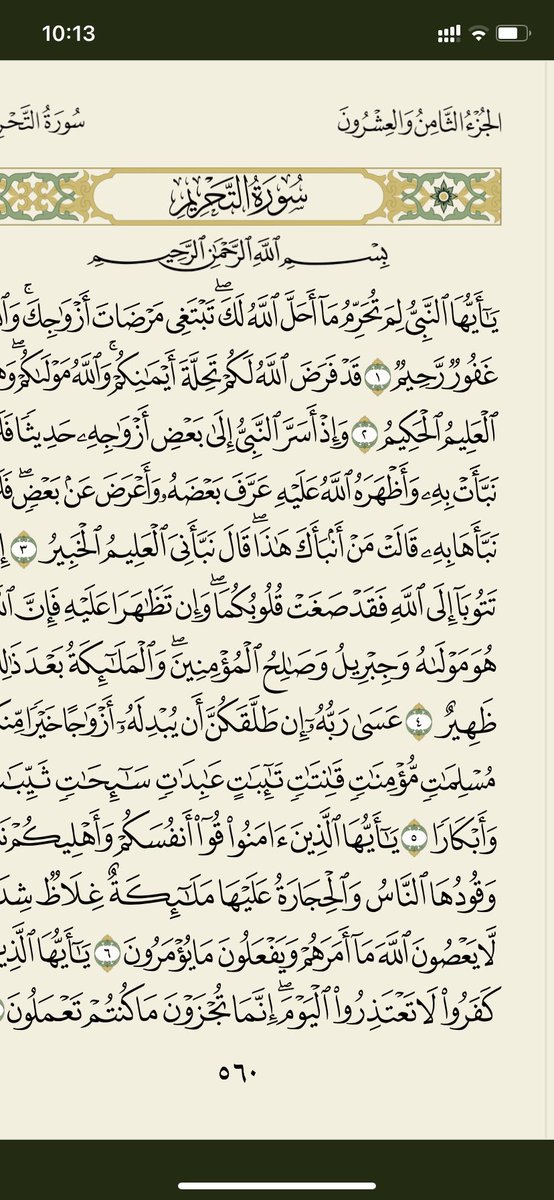 10:13
الجُزْءُ الثَّامِنُ وَالعِشْرُونَ سُورَةُ التَّحْرِ
سُورَةُ التَّحْرِيمِ
بِسْمِ ٱللَّهِ ٱلرَّحْمَٰنِ ٱلرَّحِيمِ
يَٰٓأَيُّهَا ٱلنَّبِيُّ لِمَ تُحَرِّمُ مَآ أَحَلَّ ٱللَّهُ لَكَۖ تَبْتَغِى مَرْضَاتَ أَزْوَٰجِكَۚ
غَفُورٌ رَّحِيمٌ ١ قَدْ فَرَضَ ٱللَّهُ لَكُمْ تَحِلَّةَ أَيْمَٰنِكُمْۚ وَٱللَّهُ مَوْلَىٰكُمْۖ
ٱلْعَلِيمُ ٱلْحَكِيمُ ٢ وَإِذْ أَسَرَّ ٱلنَّبِيُّ إِلَىٰ بَعْضِ أَزْوَٰجِهِۦ حَدِيثًا
نَبَّأَتْ بِهِۦ وَأَظْهَرَهُ ٱللَّهُ عَلَيْهِ عَرَّفَ بَعْضَهُۥ وَأَعْرَضَ عَنۢ بَعْضٖۖ
نَبَّأَهَا بِهِۦ قَالَتْ مَنْ أَنۢبَأَكَ هَٰذَاۖ قَالَ نَبَّأَنِىَ ٱلْعَلِيمُ ٱلْخَبِيرُ ٣
تَتُوبَآ إِلَى ٱللَّهِ فَقَدْ صَغَتْ قُلُوبُكُمَاۖ وَإِن تَظَٰهَرَا عَلَيْهِ فَإِنَّ
هُوَ مَوْلَىٰهُ وَجِبْرِيلُ وَصَٰلِحُ ٱلْمُؤْمِنِينَۖ وَٱلْمَلَٰٓئِكَةُ بَعْدَ
ظَهِيرٌ ٤ عَسَىٰ رَبُّهُۥٓ إِن طَلَّقَكُنَّ أَن يُبْدِلَهُۥٓ أَزْوَٰجًا خَيْرًا
مُسْلِمَٰتٖ مُّؤْمِنَٰتٖ قَٰنِتَٰتٖ تَٰٓئِبَٰتٍ عَٰبِدَٰتٖ سَٰٓئِحَٰتٖ
وَأَبْكَارًا ٥ يَٰٓأَيُّهَا ٱلَّذِينَ ءَامَنُوا۟ قُوٓا۟ أَنفُسَكُمْ وَأَهْلِيكُمْ
وَقُودُهَا ٱلنَّاسُ وَٱلْحِجَارَةُ عَلَيْهَا مَلَٰٓئِكَةٌ غِلَاظٌ
لَّا يَعْصُونَ ٱللَّهَ مَآ أَمَرَهُمْ وَيَفْعَلُونَ مَا يُؤْمَرُونَ ٦ يَٰٓأَيُّهَا
كَفَرُوا۟ لَا تَعْتَذِرُوا۟ ٱلْيَوْمَۖ إِنَّمَا تُجْزَوْنَ مَا كُنتُمْ تَعْمَلُونَ
٥٦٠